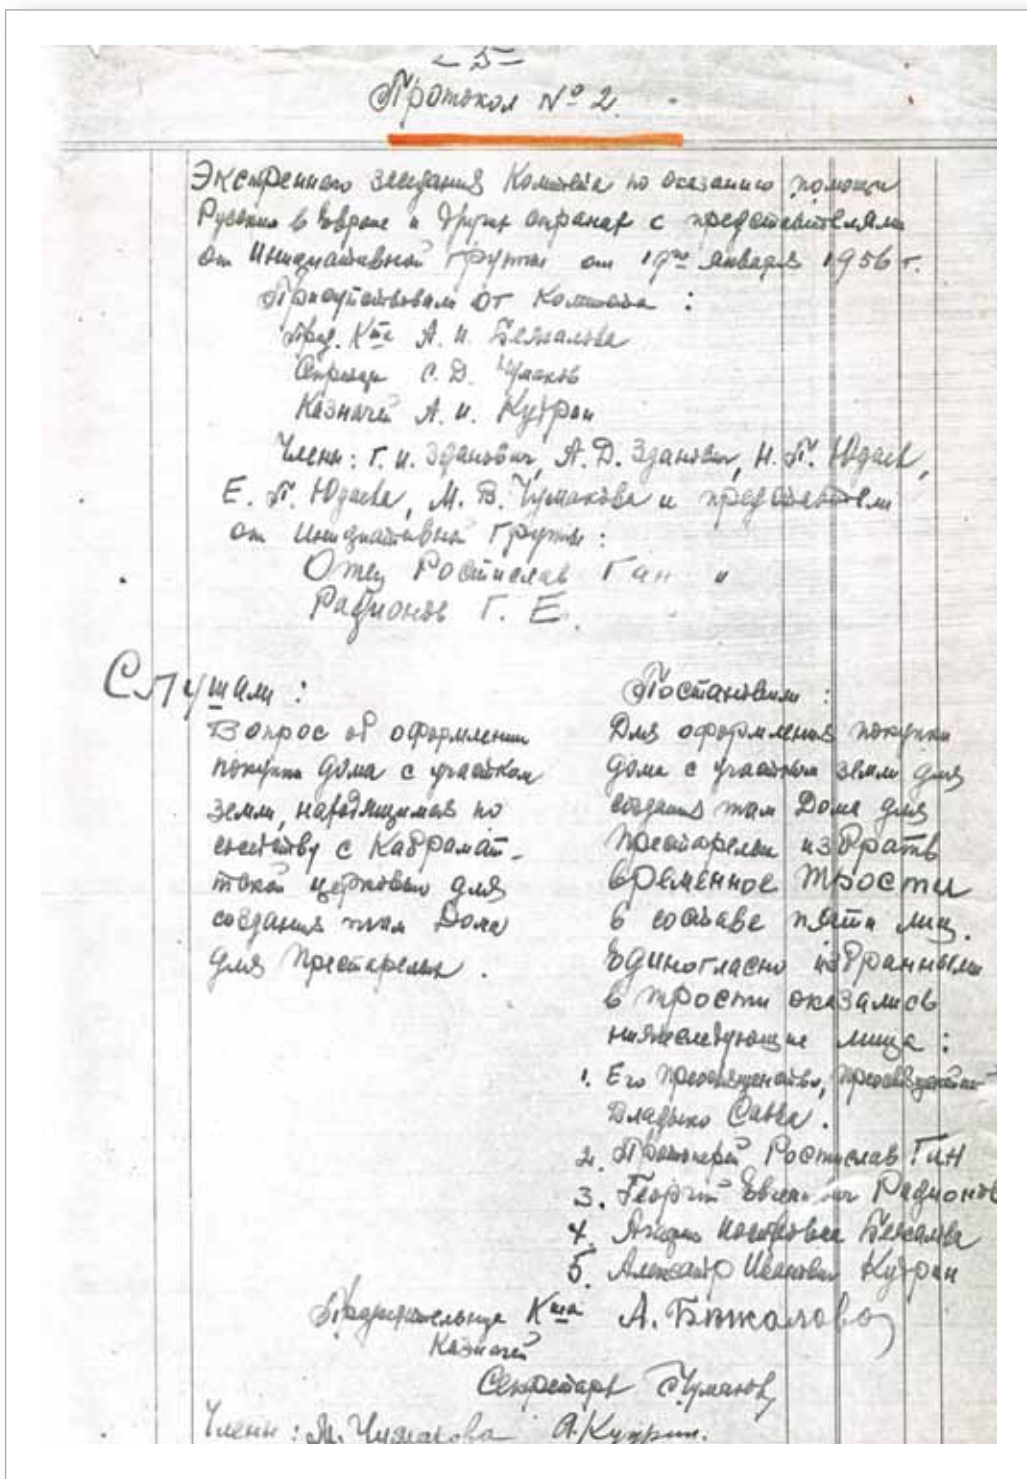 – 5 –
Протокол № 2.
Экстренного заседания Комитета по оказанию помощи
Русским в Европе и других странах с представителями
от Инициативной группы от 19го января 1956 г.
Присутствовали от Комитета:
Пред. Кта А. И. Бежалова
Секретарь С. Д. Чумаков
Казначей А. И. Кудрин
Члены: Г. И. Зданович, А. Д. Зданович, Н. П. Юдаев,
Е. П. Юдаева, М. В. Чумакова и представители
от Инициативной группы:
Отец Ростислав Ган и
Радионов Г. Е.
Слушали:
Вопрос об оформлении
покупки дома с участком
земли, находящимся по
соседству с Кабрамат-
ской церковью для
создания там Дома
для Престарелых.
Постановили:
Для оформления покупки
дома с участком земли для
создания там Дома для
престарелых избрать
временное Трости
в составе пяти лиц.
Единогласно избранными
в трости оказались
нижеследующие лица:
1. Его преосвященство, преосвященнейший
Владыко Савва.
2. Протоиерей Ростислав Ган
3. Георгий Радионов
4. Бежалова
5. Александр Иванович Кудрин
Председательница Кта А. Бежалова
Казначей
Секретарь С Чумаков
Члены: М. Чумакова А. Кудрин.